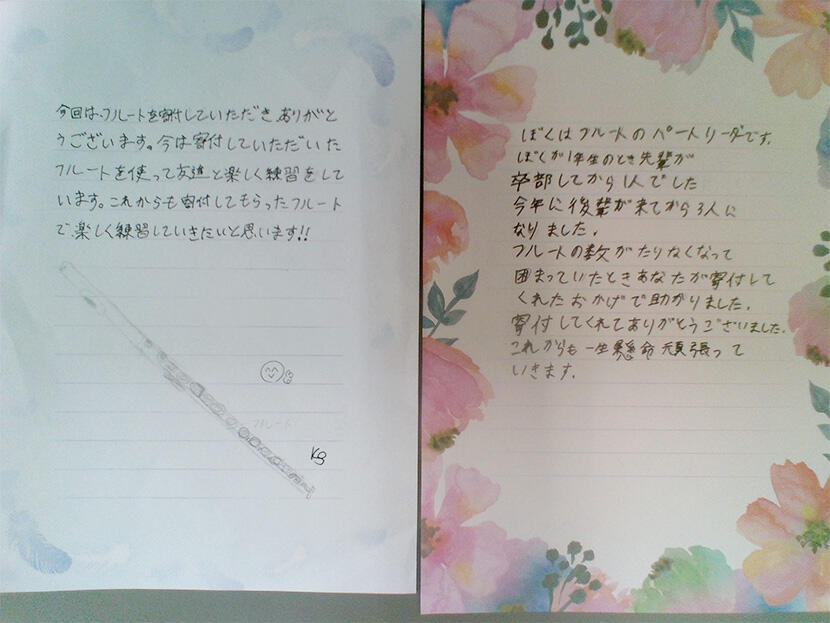 今回は、フルートを寄付していただき、ありがと
うございます。今は寄付していただいた
フルートを使って友達と楽しく練習をして
います。これからも寄付してもらったフルート
で楽しく練習していきたいと思います!!
フルート
ぼくはフルートのパートリーダーです。
ぼくが1年生のとき先輩が
卒部してから1人でした
今年に後輩が来てから3人に
なりました。
フルートの数がたりなくなって
困まっていたときあなたが寄付して
くれたおかげで助かりました。
寄付してくれてありがとうございました。
これからも一生懸命頑張って
いきます。